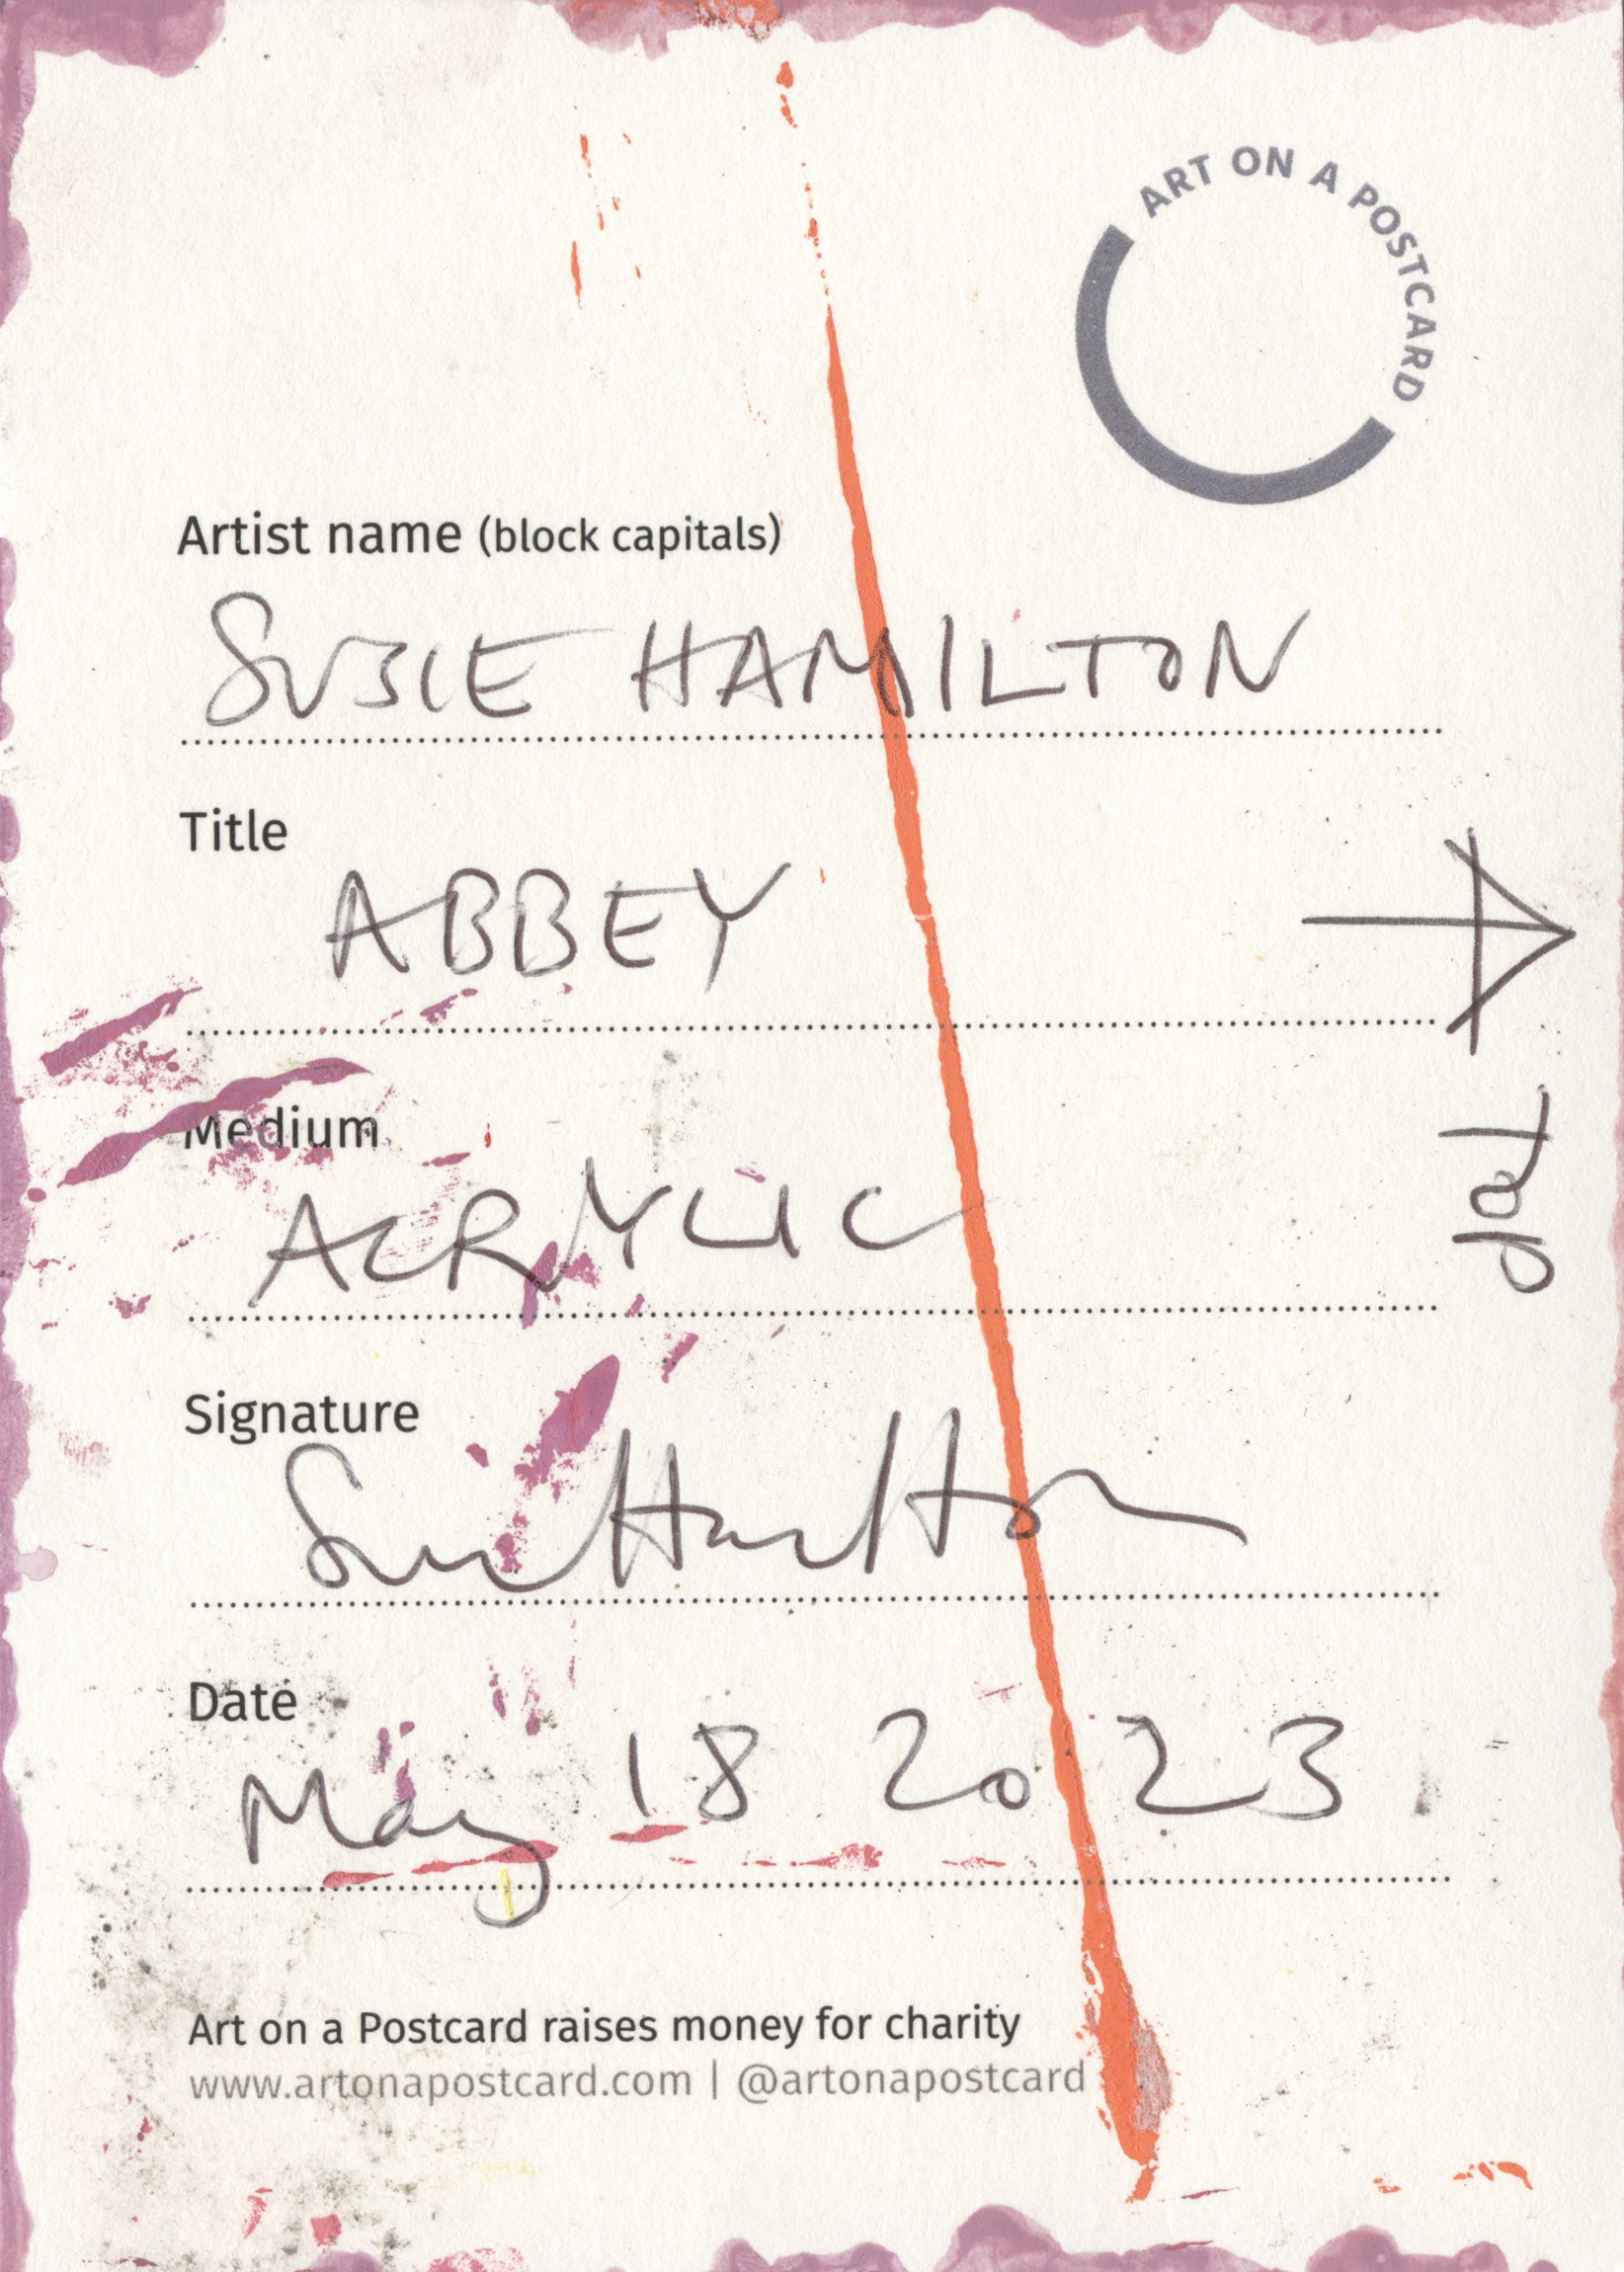 ART ON A POSTCARD
Artist name (block capitals)
SUSIE HAMILTON
Title
ABBEY
TOP
Medium
ACRYLIC
Signature
Date
May 18 2023
Art on a Postcard raises money for charity
www.artonapostcard.com | @artonapostcard